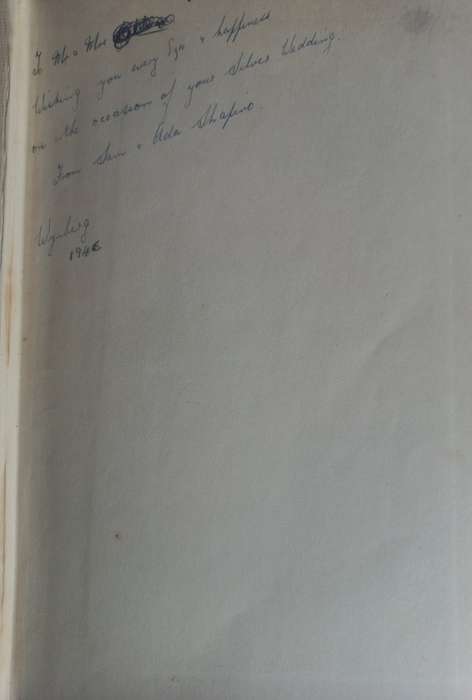 To Mr & Mrs
Wishing you every Joy & happiness
on the occasion of your Silver Wedding.
From Sam & Ada Shapiro.
Wynberg
1946